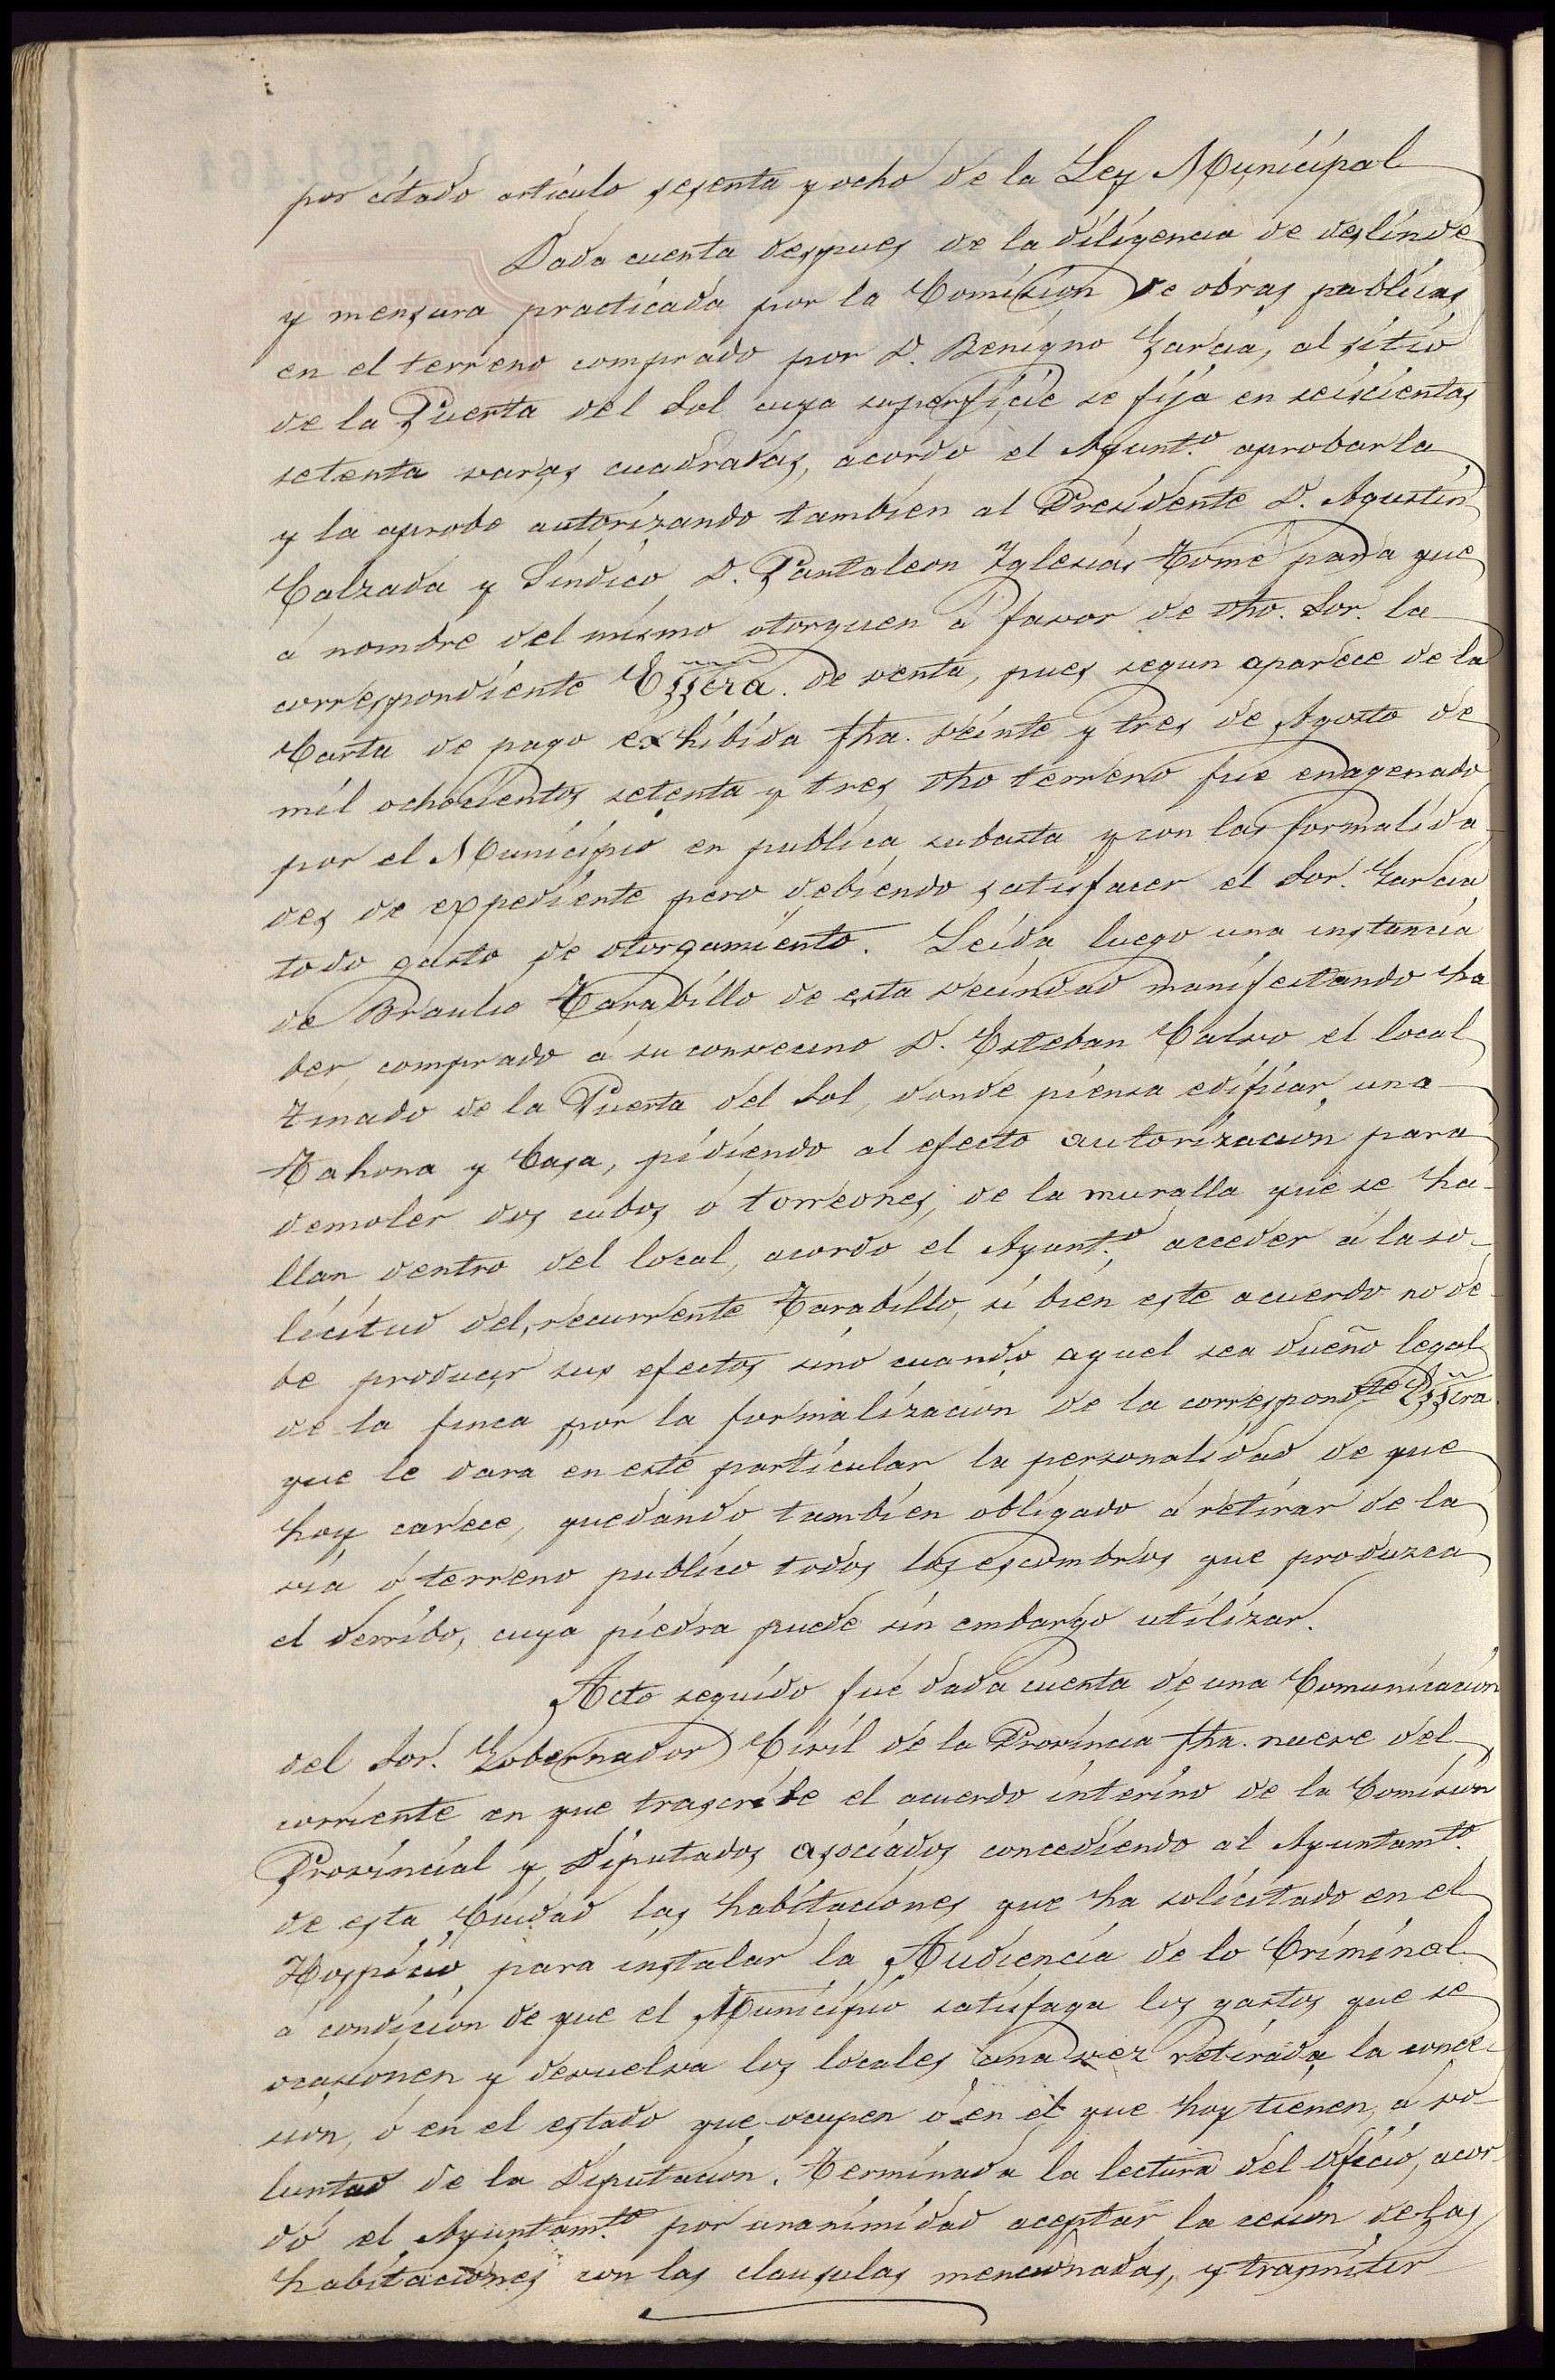 por citado artículo sesenta y ocho de la Ley Municipal
Dada cuenta despues de la diligencia de deslinde
y mensura practicada por la Comision de obras publicas
en el terreno comprado por D. Benigno Garcia, al sitio
de la Puerta del Sol cuya superficie se fija en seiscientas
setenta varas cuadradas, acordó el Ayunt.º aprobarla
y la aprobo autorizando tambien al Presidente D. Agustin
Calzada y Sindico D. Pantaleon Yglesias Tomé para que
á nombre del mismo otorguen á favor de dho. Sor. la
correspondiente Esscra. de venta, pues segun aparece de la
Carta de pago exhibida fha. veinte y tres de Agosto de
mil ochocientos setenta y tres dho terreno fue enagenado
por el Municipio en publica subasta y con las formalida-
des de expediente pero debiendo satisfacer el Sor. Garcia
todo gasto de otorgamiento. Leida luego una instancia
de Braulio Tarabillo de esta vecindad manifestando ha
ber comprado á su convecino D. Esteban Calvo el local
tinado de la Puerta del Sol, donde piensa edificar una
Tahona y Casa, pidiendo al efecto autorizacion para
demoler dos cubos ó torreones, de la muralla que se ha-
llan dentro del local, acordó el Ayunt.º acceder á la so-
licitud del recurrente Tarabillo, si bien este acuerdo no de-
be producir sus efectos sino cuando aquel sea dueño legal
de la finca por la formalizacion de la correspond.te Esscra.
que le dara en este particular la personalidad de que
hoy carece, quedando tambien obligado á retirar de la
via ó terreno publico todos los escombros que produzca
el derribo, cuya piedra puede sin embargo utilizar.
Acto seguido fué dada cuenta de una Comunicacion
del Sor. Gobernador Civil de la Provincia fha. nueve del
corriente en que trascribe el acuerdo interino de la Comision
Provincial y Diputados asociados concediendo al Ayuntam.to
de esta Ciudad las habitaciones que ha solicitado en el
Hospicio para instalar la Audiencia de lo Criminal
á condicion de que el Municipio satisfaga los gastos que se
ocasionen y devuelva los locales una vez retirada la conce-
sion, ó en el estado que ocupen ó en el que hoy tienen, á vo-
luntad de la Diputacion. Terminada la lectura del Oficio, acor
dó el Ayuntam.to por unanimidad aceptar la cesion de las
habitaciones con las clausulas mencionadas, y trasmitir